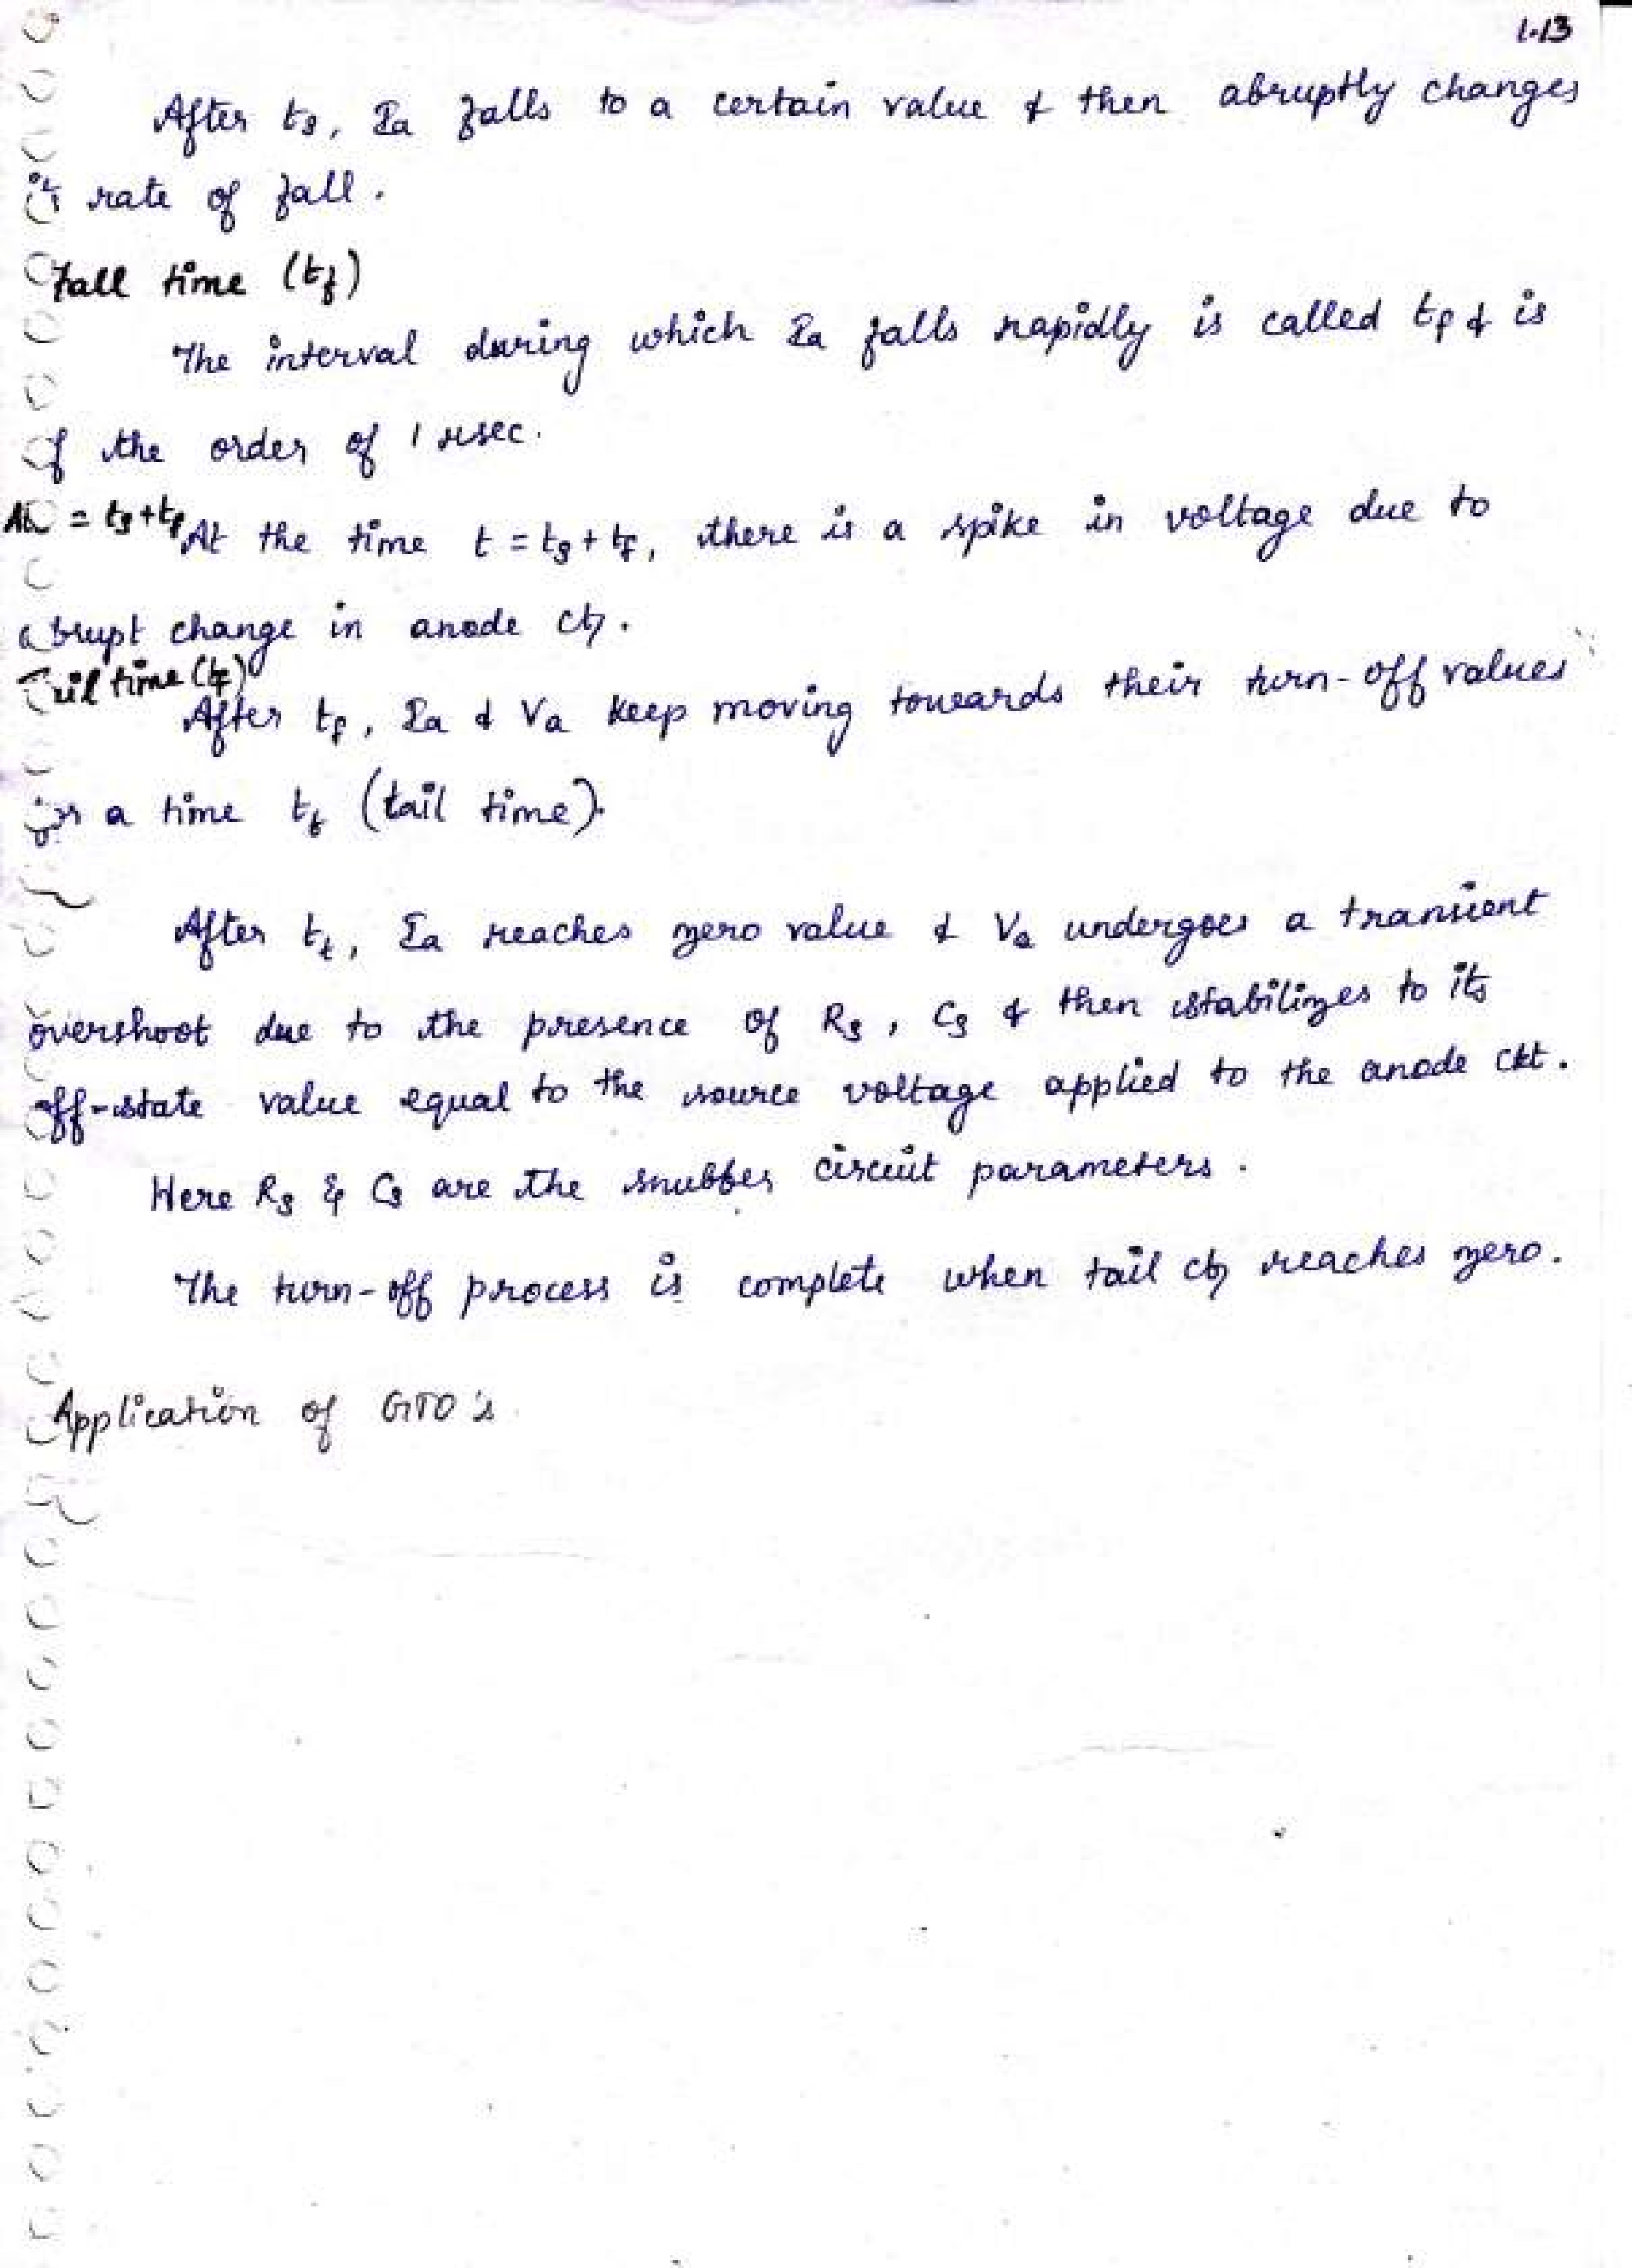 1.13
After ts, Ia falls to a certain value & then abruptly changes
its rate of fall.
Fall time (tf)
The interval during which Ia falls rapidly is called tf & is
of the order of 1 μsec.
At t = ts+tf
At the time t = ts + tf, there is a spike in voltage due to
abrupt change in anode ct.
Tail time (tt)
After tf, Ia & Va keep moving towards their turn-off values
for a time tt (tail time).
After tt, Ia reaches zero value & Va undergoes a transient
overshoot due to the presence of Rs, Cs & then stabilizes to its
off-state value equal to the source voltage applied to the anode ckt.
Here Rs & Cs are the snubber circuit parameters.
The turn-off process is complete when tail ct reaches zero.
Application of GTO's